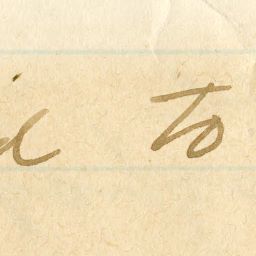 d to